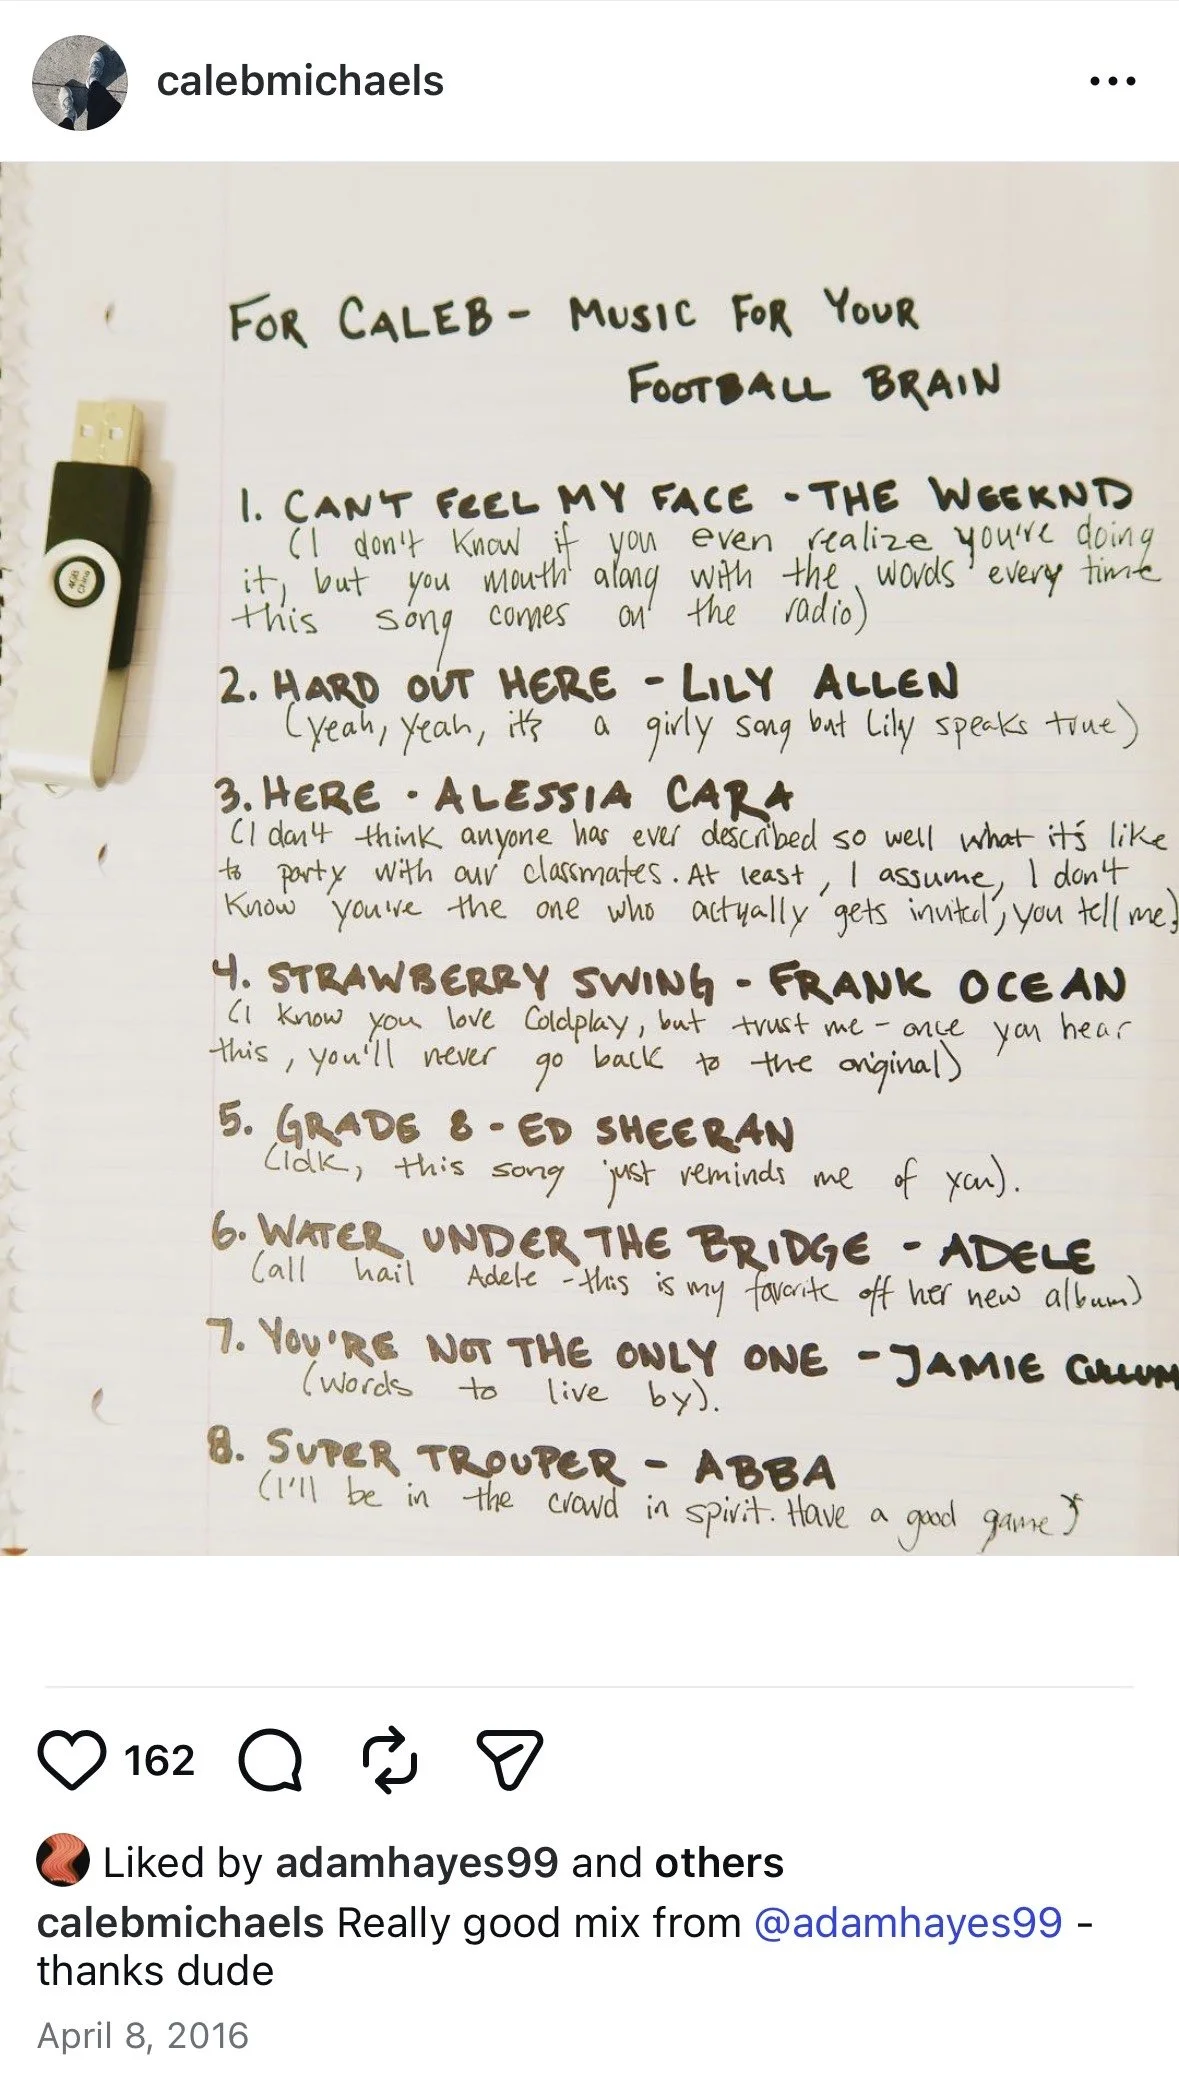 calebmichaels
FOR CALEB - MUSIC FOR YOUR
FOOTBALL BRAIN
1. CAN'T FEEL MY FACE - THE WEEKND
(I don't know if you even realize you're doing
it, but you mouth along with the words every time
this song comes on the radio)
2. HARD OUT HERE - LILY ALLEN
(yeah, yeah, it's a girly song but Lily speaks true)
3. HERE - ALESSIA CARA
(I don't think anyone has ever described so well what it's like
to party with our classmates. At least, I assume, I don't
know you're the one who actually gets invited, you tell me)
4. STRAWBERRY SWING - FRANK OCEAN
(I know you love Coldplay, but trust me - once you hear
this, you'll never go back to the original)
5. GRADE 8 - ED SHEERAN
(Idk, this song just reminds me of you).
6. WATER UNDER THE BRIDGE - ADELE
(all hail Adele - this is my favorite off her new album)
7. YOU'RE NOT THE ONLY ONE - JAMIE CULLUM
(words to live by).
8. SUPER TROUPER - ABBA
(I'll be in the crowd in spirit. Have a good game)
4GB
China
162
Liked by adamhayes99 and others
calebmichaels Really good mix from @adamhayes99 -
thanks dude
April 8, 2016